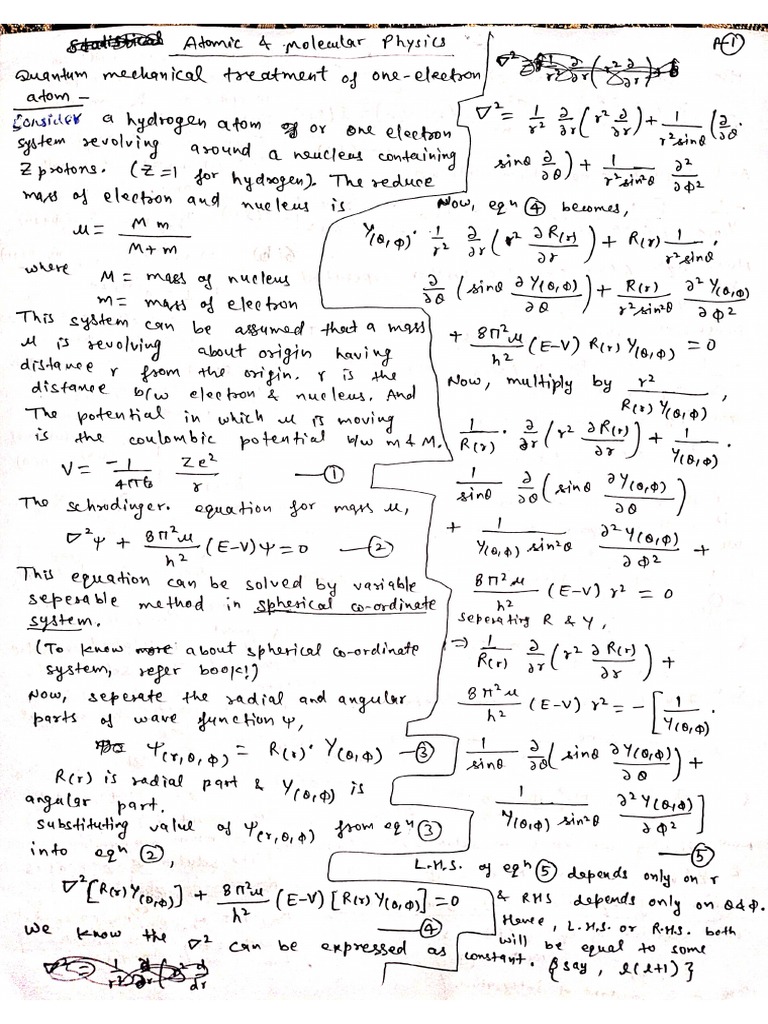 Atomic & Molecular Physics
P-①
Quantum mechanical treatment of one-electron
atom –
Consider a hydrogen atom or one electron
system revolving around a neucleus containing
Z protons. (Z=1 for hydrogen). The reduce
mass of electron and nucleus is
μ = Mm / (M+m)
where M = mass of nucleus
m = mass of electron
This system can be assumed that a mass
μ is revolving about origin having
distance r from the origin. r is the
distance b/w electron & nucleus. And
The potential in which μ is moving
is the coulombic potential b/w m & M.
V = -1/4πε₀ Ze²/r —①
The schrodinger. equation for mass μ,
∇²ψ + 8π²μ/h² (E-V)ψ = 0 —②
This equation can be solved by variable
seperable method in spherical co-ordinate
system.
(To know about spherical co-ordinate
system, refer book!)
Now, seperate the radial and angular
parts of wave function ψ,
ψ(r,θ,φ) = R(r)· Y(θ,φ) —③
R(r) is radial part & Y(θ,φ) is
angular part.
substituting value of ψ(r,θ,φ) from eqⁿ ③
into eqⁿ ②,
∇²[R(r)Y(θ,φ)] + 8π²μ/h² (E-V)[R(r)Y(θ,φ)] = 0
—④
We know the ∇² can be expressed as
∇² = 1/r² ∂/∂r (r² ∂/∂r) + 1/r²sinθ (∂/∂θ·
sinθ ∂/∂θ) + 1/r²sin²θ ∂²/∂φ²
Now, eqⁿ ④ becomes,
Y(θ,φ)· 1/r² ∂/∂r (r² ∂R(r)/∂r) + R(r) 1/r²sinθ ·
∂/∂θ (sinθ ∂Y(θ,φ)/∂θ) + R(r)/r²sin²θ ∂²Y(θ,φ)/∂φ²
+ 8π²μ/h² (E-V) R(r) Y(θ,φ) = 0
Now, multiply by r²/R(r)Y(θ,φ),
1/R(r) · ∂/∂r (r² ∂R(r)/∂r) + 1/Y(θ,φ) ·
1/sinθ ∂/∂θ (sinθ ∂Y(θ,φ)/∂θ)
+ 1/Y(θ,φ) sin²θ ∂²Y(θ,φ)/∂φ² +
8π²μ/h² (E-V) r² = 0
seperating R & Y,
⇒ 1/R(r) ∂/∂r (r² ∂R(r)/∂r) +
8π²μ/h² (E-V) r² = - [1/Y(θ,φ) ·
1/sinθ ∂/∂θ (sinθ ∂Y(θ,φ)/∂θ) +
1/Y(θ,φ) sin²θ ∂²Y(θ,φ)/∂φ²]
—⑤
L.H.S. of eqⁿ ⑤ depends only on r
& RHS depends only on θ&φ.
Hence, L.H.S. or R.H.S. both
will be equal to some
constant. {say, l(l+1)}